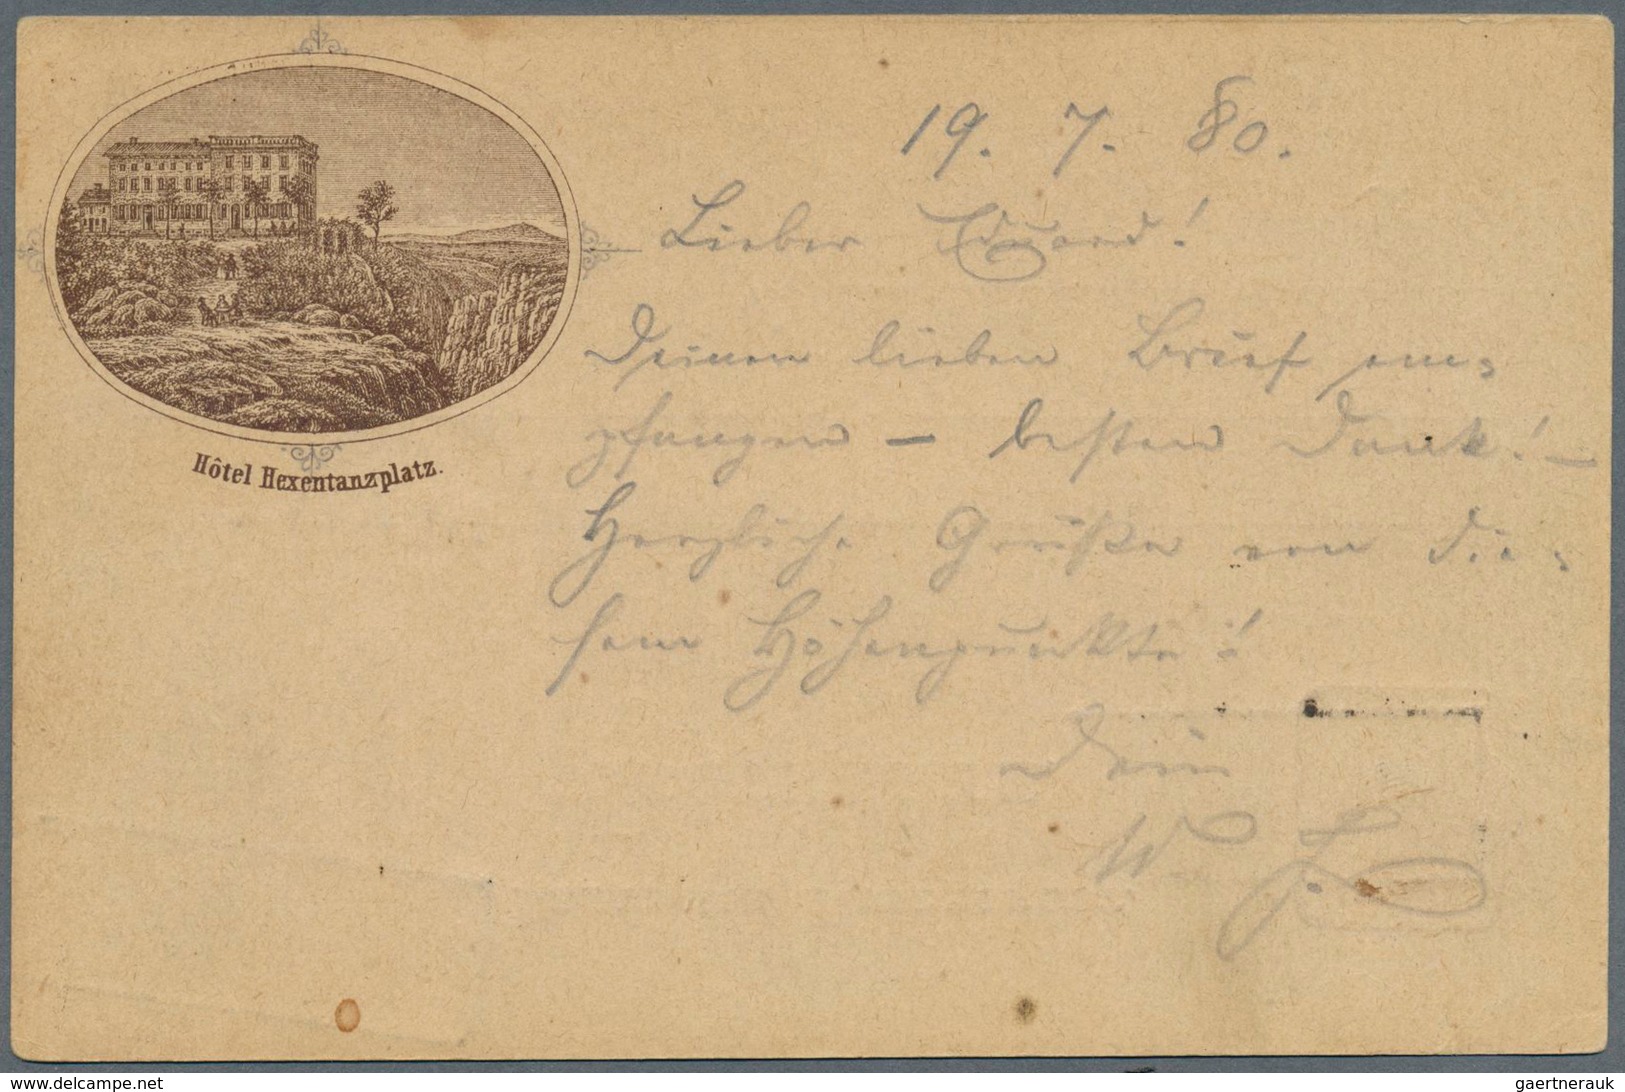 19. 7. 80.
Lieber Eduard!
Deinen lieben Brief em-
pfangen – besten Dank! –
Herzliche Grüße von die-
sem Höhenpunkte!
Dein
W
Hôtel Hexentanzplatz.
gaertnerauk @ delcampe.net